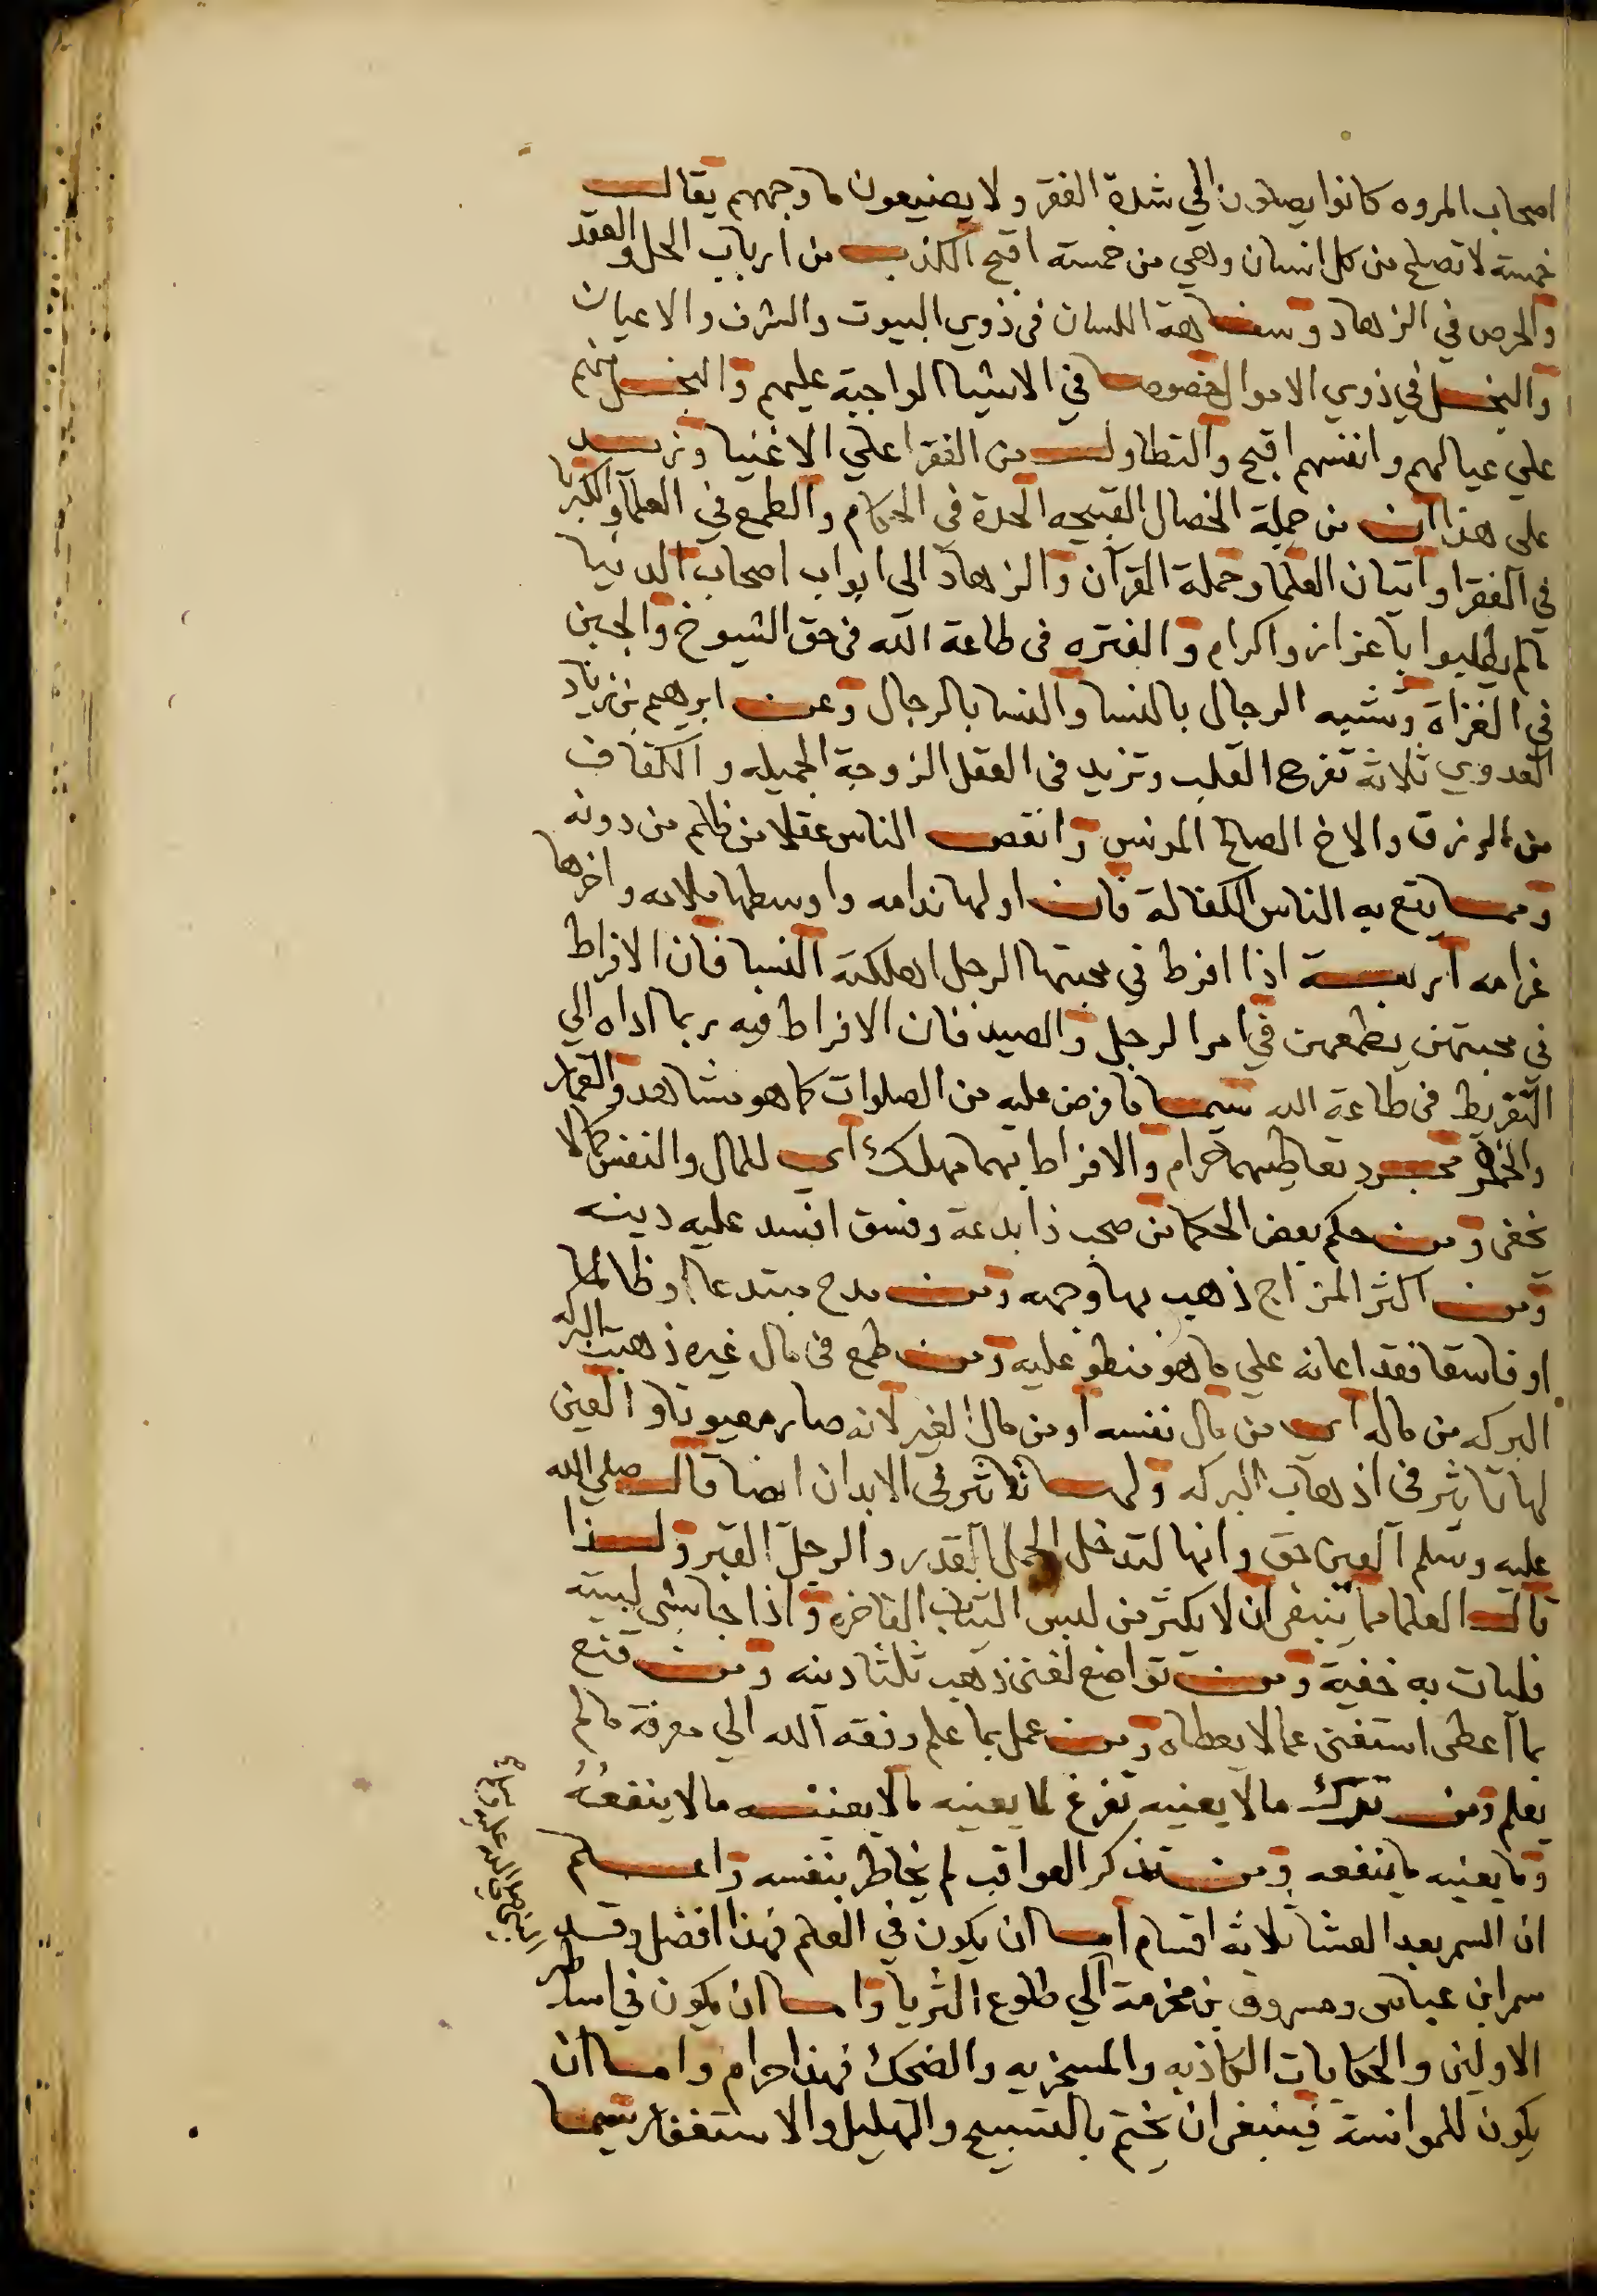 اصحاب المروه كانوا يصلون الي شدة الفقر ولا يضيعون ما وجههم يقال
خمسة لا تصلح من كل انسان وهي من خمسة اقبح الكذب من ارباب الحل والعقد
والحرص في الزهاد وسفاهة اللسان في ذوي البيوت والشرف والاعيان
والبخل في ذوي الاموال خصوصا في الاشيا الواجبة عليهم والبخل منهم
علي عيالهم وانفسهم اقبح والتطاول من الفقرا علي الاغنيا وزيد
علي هذا ان من جملة الخصال القبيحه الحدة في الحكام والطمع في العلما والكبريا
في الفقرا واتيان العلما وحملة القرآن والزهاد الي ابواب اصحاب الدنيا
مالم يطلبوا باعزاز واكرام والفتره في طاعة الله في حق الشيوخ والجبن
في الغزاة وتشبه الرجال بالنسا والنسا بالرجال وعن ابرهيم بن زياد
العدوي ثلاثة تفرح القلب وتزيد في العقل الزوجة الجميله والكفاف
من الرزق والاخ الصالح المونس وانقص الناس عقلا من ظلم من دونه
ومما يقع به الناس الكفالة فان اولها ندامه واوسطها ملامه واخرها
غرامه اربعة اذا افرط في محبتها الرجل اهلكته النسا فان الافراط
في محبتهن يطمعهن في امر الرجل والصيد فان الافراط فيه ربما اداه الي
التفريط في طاعة الله سيما ما فرض عليه من الصلوات كما هو مشاهد والقمار
والخمر مجرد تعاطيهما حرام والافراط بهما مهلك اي للمال والنفس كما لا
يخفي ومن حكم بعض الحكما من صحب ذا بدعة وفسق افسد عليه دينه
ومن اكثر المزاج ذهب بها وجهه ومن مدح مبتدعا او ظالما
او فاسقا فقد اعانه علي ما هو منطو عليه ومن طمع في مال غيره ذهبت البركه
البركه من ماله اي من مال نفسه او من مال الغير لانه صار معيونا والعين
لها تاثير في اذهاب البركه ولها تاثير في الابدان ايضا قال صلي الله
عليه وسلم العين حق وانها لتدخل الجمل القدر والرجل القبر ولذا
قال العلما مما ينبغي ان لا يكثر من لبس الثياب الفاخره واذا جا بشي لبيته
فليات به خفية ومن تواضع لغني ذهب ثلثا دينه ومن قنع
بما اعطي استغني عما لا يعطاه ومن عمل بما علم وفقه الله الي معرفة مالم
يعلم ومن ترك مالا يعنيه تفرغ لما يعنيه مالا يعنيه مالا ينفعه
وما يعنيه ما ينفعه ومن تذكر العواقب لم يخاطر بنفسه واعلم
ان السمر بعد العشا ثلاثة اقسام اما ان يكون في العلم فهذا افضل وقد
سمر ابن عباس ومسروق بن مخرمة الي طلوع الثريا واما ان يكون في اساطير
الاولين والحكايات الكاذبه والمسخريه والضحك فهذا حرام واما ان
يكون للموانسة فينبغي ان يختم بالتسبيح والتهليل والاستغفار سيما